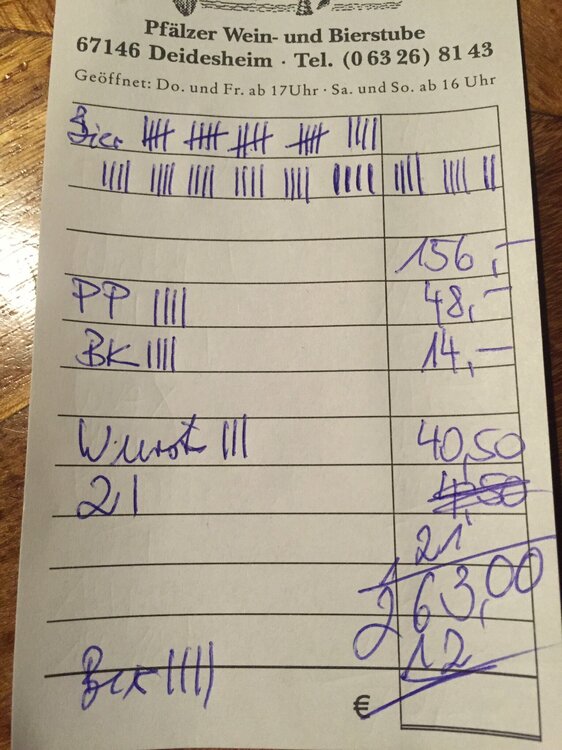 Pfälzer Wein- und Bierstube
67146 Deidesheim · Tel. (0 63 26) 81 43
Geöffnet: Do. und Fr. ab 17Uhr · Sa. und So. ab 16 Uhr
Bier |||| |||| |||| |||| ||||
|||| |||| |||| |||| |||| |||| |||| |||| ||
156,-
PP |||| 48,-
BK |||| 14,-
Wurst ||| 40,50
2 | 4,50
21
263,00
12
||||
€